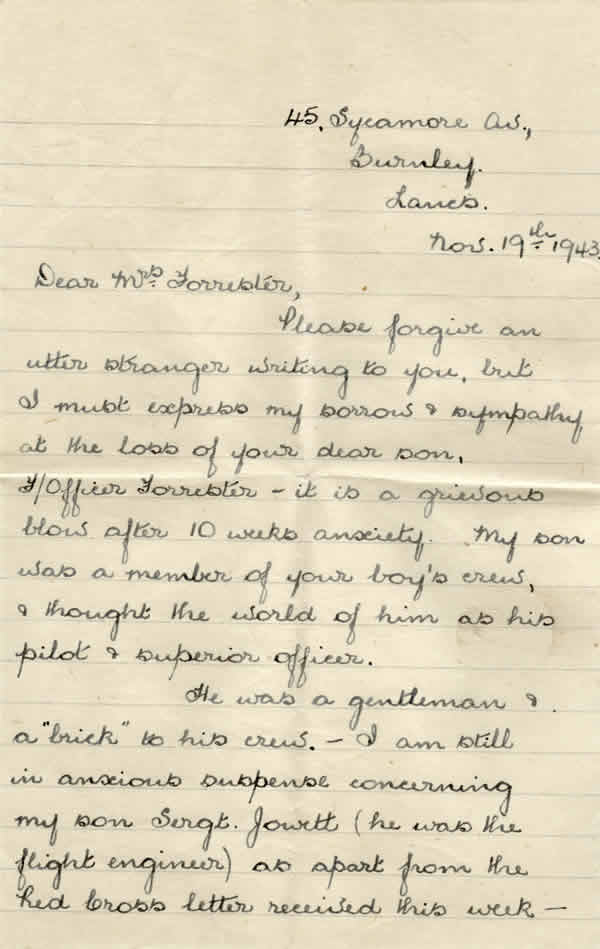 45, Sycamore Av.,
Burnley.
Lancs.
Nov. 19th 1943.
Dear Mrs. Forrester,
Please forgive an
utter stranger writing to you, but
I must express my sorrow & sympathy
at the loss of your dear son,
F/Officer Forrester – it is a grievous
blow after 10 weeks anxiety. My son
was a member of your boy's crew,
& thought the world of him as his
pilot & superior officer.
He was a gentleman &
a "brick" to his crew. – I am still
in anxious suspense concerning
my son Sergt. Jowett (he was the
flight engineer) as apart from the
Red Cross letter received this week –